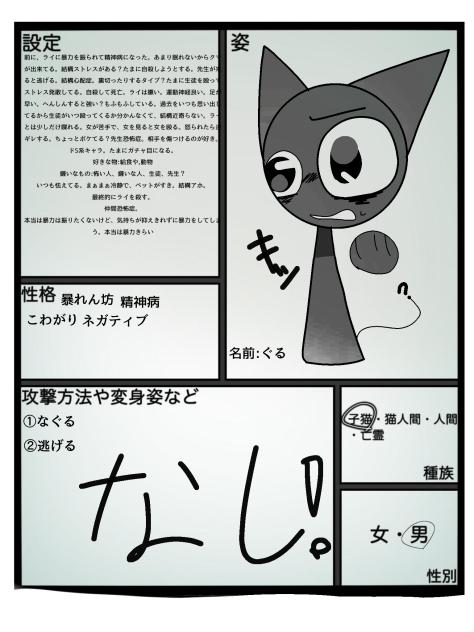 設定
前に、ライに暴力を振られて精神病になった。あまり眠れないからクマ
が出来てる。結構ストレスがある？たまに自殺しようとする。先生が来
ると逃げる。結構心配症。裏切ったりするタイプ？たまに生徒を殴って
ストレス発散してる。自殺して死亡。ライは嫌い。運動神経良い。足が
早い。へんしんすると強い？もふもふしている。過去をいつも思い出し
てるから生徒がいつ殴ってくるか分かんなくて、結構近寄らない。ラー
とは少しだけ喋れる。女が苦手で、女を見ると女を殴る。怒られたら逆
ギレする。ちょっとボケてる？先生恐怖症。相手を傷つけるのが好き。
ドS系キャラ。たまにガチャ目になる。
好きな物:給食や,動物
嫌いなもの:怖い人、嫌いな人、生徒、先生？
いつも怯えてる。まぁまぁ冷静で、ペットがすき。結構アホ。
最終的にライを殺す。
仲間恐怖症。
本当は暴力は振りたくないけど、気持ちが抑えきれずに暴力をしてしま
う。本当は暴力きらい
姿
名前:ぐる
性格 暴れん坊 精神病
こわがり ネガティブ
攻撃方法や変身姿など
①なぐる
②逃げる
なし!。
子猫・猫人間・人間
・亡霊
種族
女・男
性別